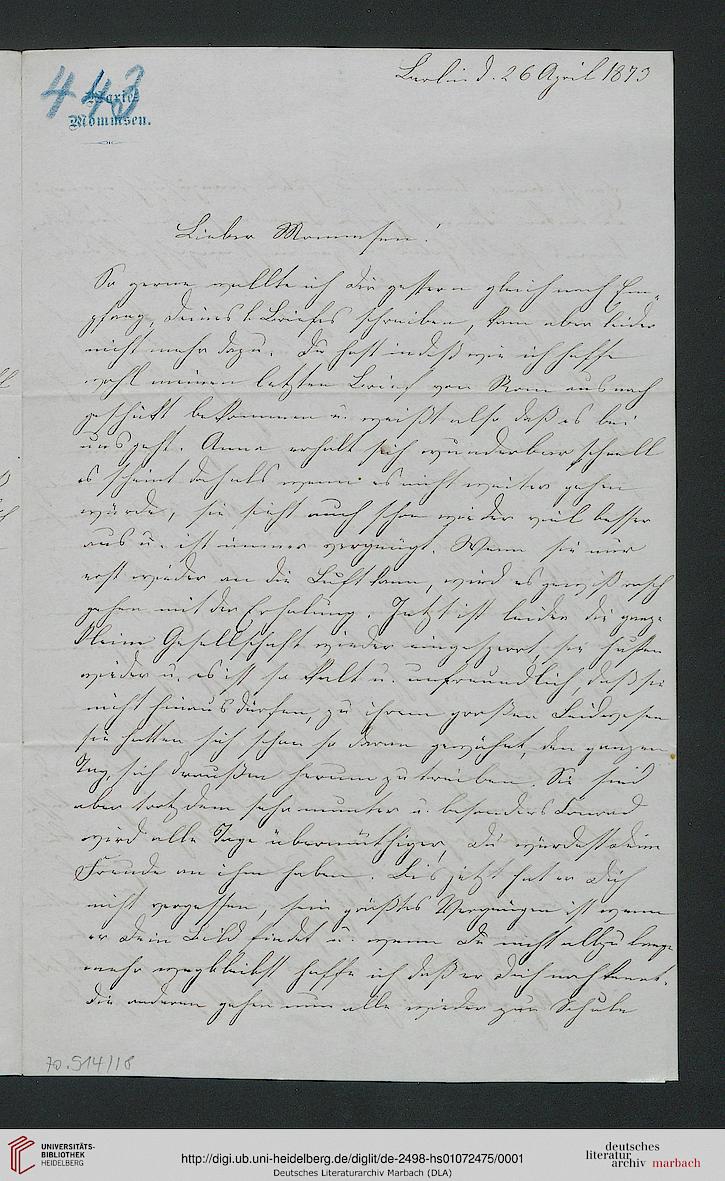 443
Marie
Mommsen.
Berlin d. 26 April 1873
Lieber Mommsen!
So gerne wollte ich dir gestern gleich nach Em-
pfang deines l. Briefes schreiben, kam aber leider
nicht mehr dazu. Du hast indeß wie ich hoffe
wohl meinen letzten Brief von Rom aus nach
geschickt bekommen u. weißt also daß es bei
uns geht. Anna erholt sich wunderbar schnell
es scheint doch als wenn es nicht weiter gehen
würde, sie sieht auch schon wieder viel besser
aus u. ist immer vergnügt. Wenn sie nur
erst wieder an die Luft kann, wird es gewiß rasch
gehen mit der Erholung. Jetzt ist leider die ganze
kleine Gesellschaft wieder eingesperrt, sie husten
wieder u. es ist so kalt u. unfreundlich, daß sie
nicht hinaus dürfen, zu ihrem großen Leidwesen
sie hatten sich schon so daran gewöhnt, den ganzen
Tag sich draußen herum zu treiben. Sie sind
aber trotzdem sehr munter u. besonders Conrad
wird alle Tage übermüthiger, du würdest deine
Freude an ihm haben. Bis jetzt hat er dich
nicht vergessen, sein größtes Vergnügen ist wenn
er dein Bild findet u. wenn du nicht allzu lange
mehr wegbleibst hoffe ich daß er dich noch kennt.
Die anderen gehen nun alle wieder zur Schule
70.514/18
UNIVERSITÄTS-
BIBLIOTHEK
HEIDELBERG
http://digi.ub.uni-heidelberg.de/diglit/de-2498-hs01072475/0001
Deutsches Literaturarchiv Marbach (DLA)
deutsches
literatur
archiv marbach